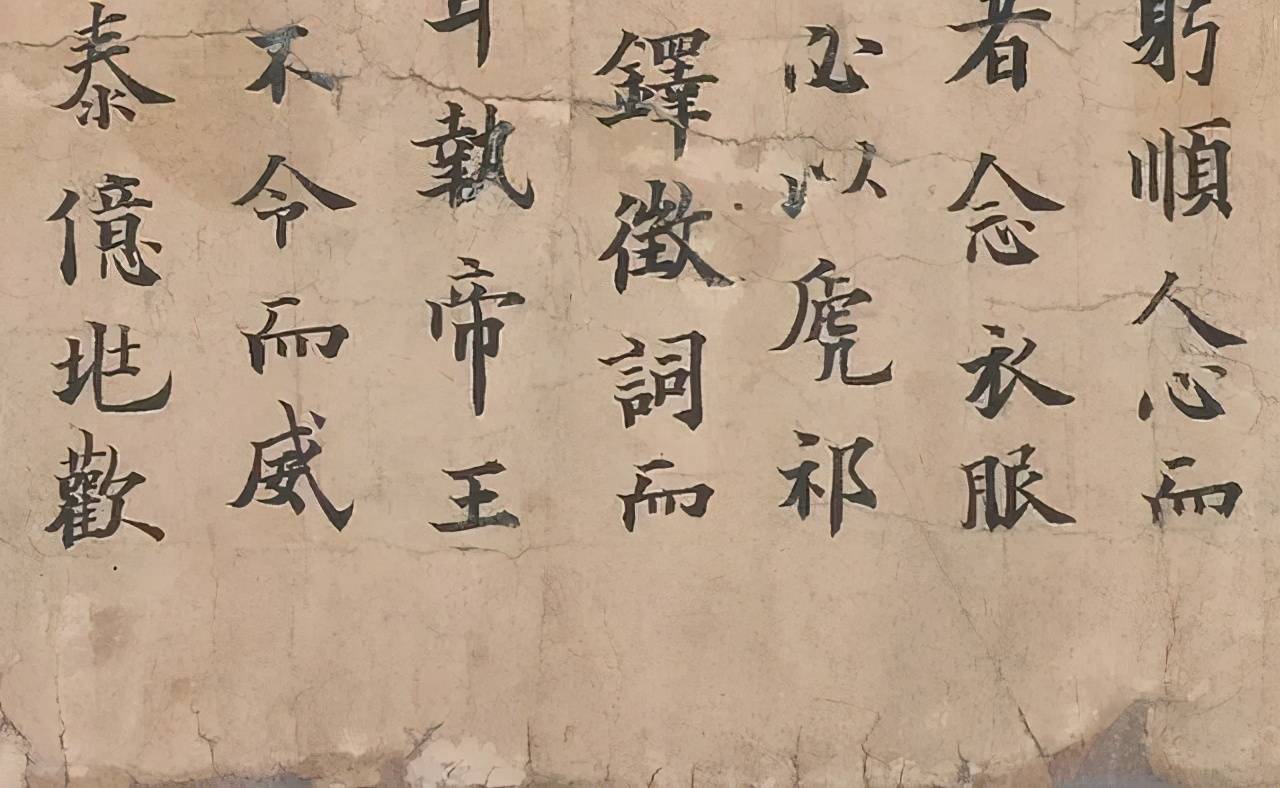 躬順人心而
者念衣服
必以虒祁
鐸徵詞而
執帝王
不令而威
泰億兆歡